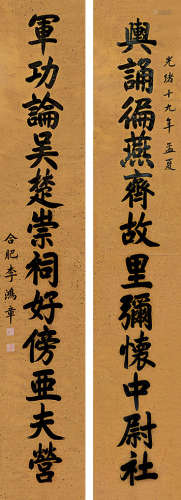 光緒十九年孟夏
輿誦徧燕齊故里彌懷中尉社
軍功論吴楚崇祠好傍亞夫營
合肥李鴻章